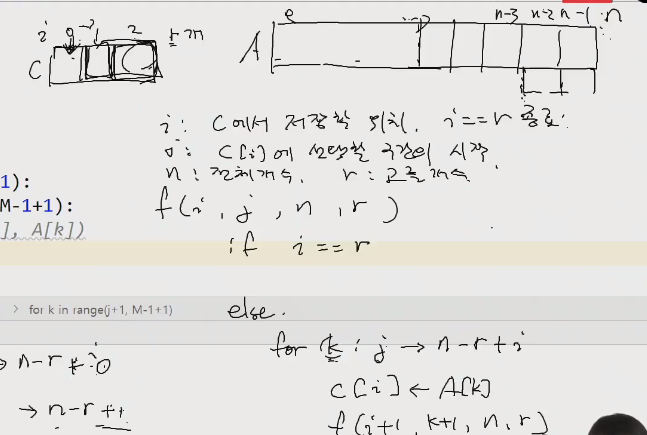 i 0 → 1 2 r개
C
A
0 n-3 n-2 n-1 n
i : C에서 저장할 위치. i==r 종료.
j : C[i]에 선택할 구간의 시작
n : 전체개수. r : 고를개수
1):
M-1+1):
], A[k])
f(i, j, n, r)
if i == r
for k in range(j+1, M-1+1)
else.
for k : j → n-r+i
→ n-r+0
C[i] ← A[k]
→ n-r+1
f(i+1, k+1, n, r)